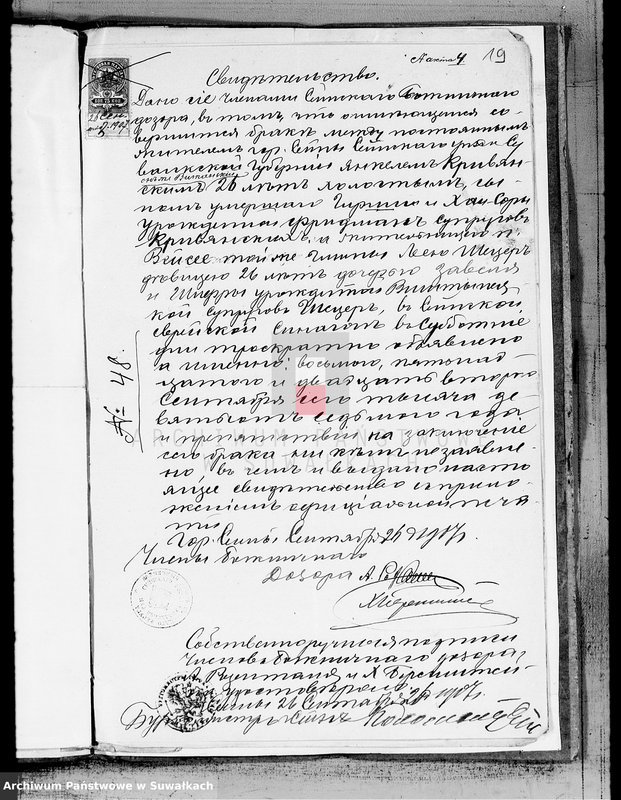 19
4
Свидѣтельство.
Дано сіе членами Сейнскаго Божничнаго
дозора, въ томъ, что о имѣющемся со-
вершится бракѣ между постояннымъ
жителемъ гор. Сейны Сейнскаго уѣзда Су-
валкской Губерніи Янкелемъ Кривян-
скимъ 26 лѣтъ холостымъ, сы-
номъ умершаго и Хаи-Соры
урожденной Фридманъ супруговъ
Кривянскихъ, а жительницею п.
Вейсее той же Лею Шецеръ
дѣвицею 26 лѣтъ дочерью Завеля
и урожденной
супруговъ Шецеръ, въ Сейнской
еврейской синагогѣ въ субботніе
дни троекратно объявлено
а именно: восьмого, пятнад-
цатого и двадцать второго
Сентября сего тысяча де-
вятьсотъ седьмого года
и препятствій на заключеніе
сего брака ни кѣмъ не заявле-
но, въ чемъ и выдано насто-
ящее свидѣтельство съ прило-
женіемъ оффиціальной печа-
ти.
Гор. Сейны Сентября 26 д. 1907 г.
Члены Божничнаго
Дозора А.
№ 48.
Собственноручныя подписи
Членовъ Божничнаго дозора
А. и Х. Беренштей-
на удостовѣряю.
Сейны 26 Сентября 1907 г.
Бургомистръ
ARCHIWUM PAŃSTWOWE
W SUWAŁKACH
Archiwum Państwowe w Suwałkach